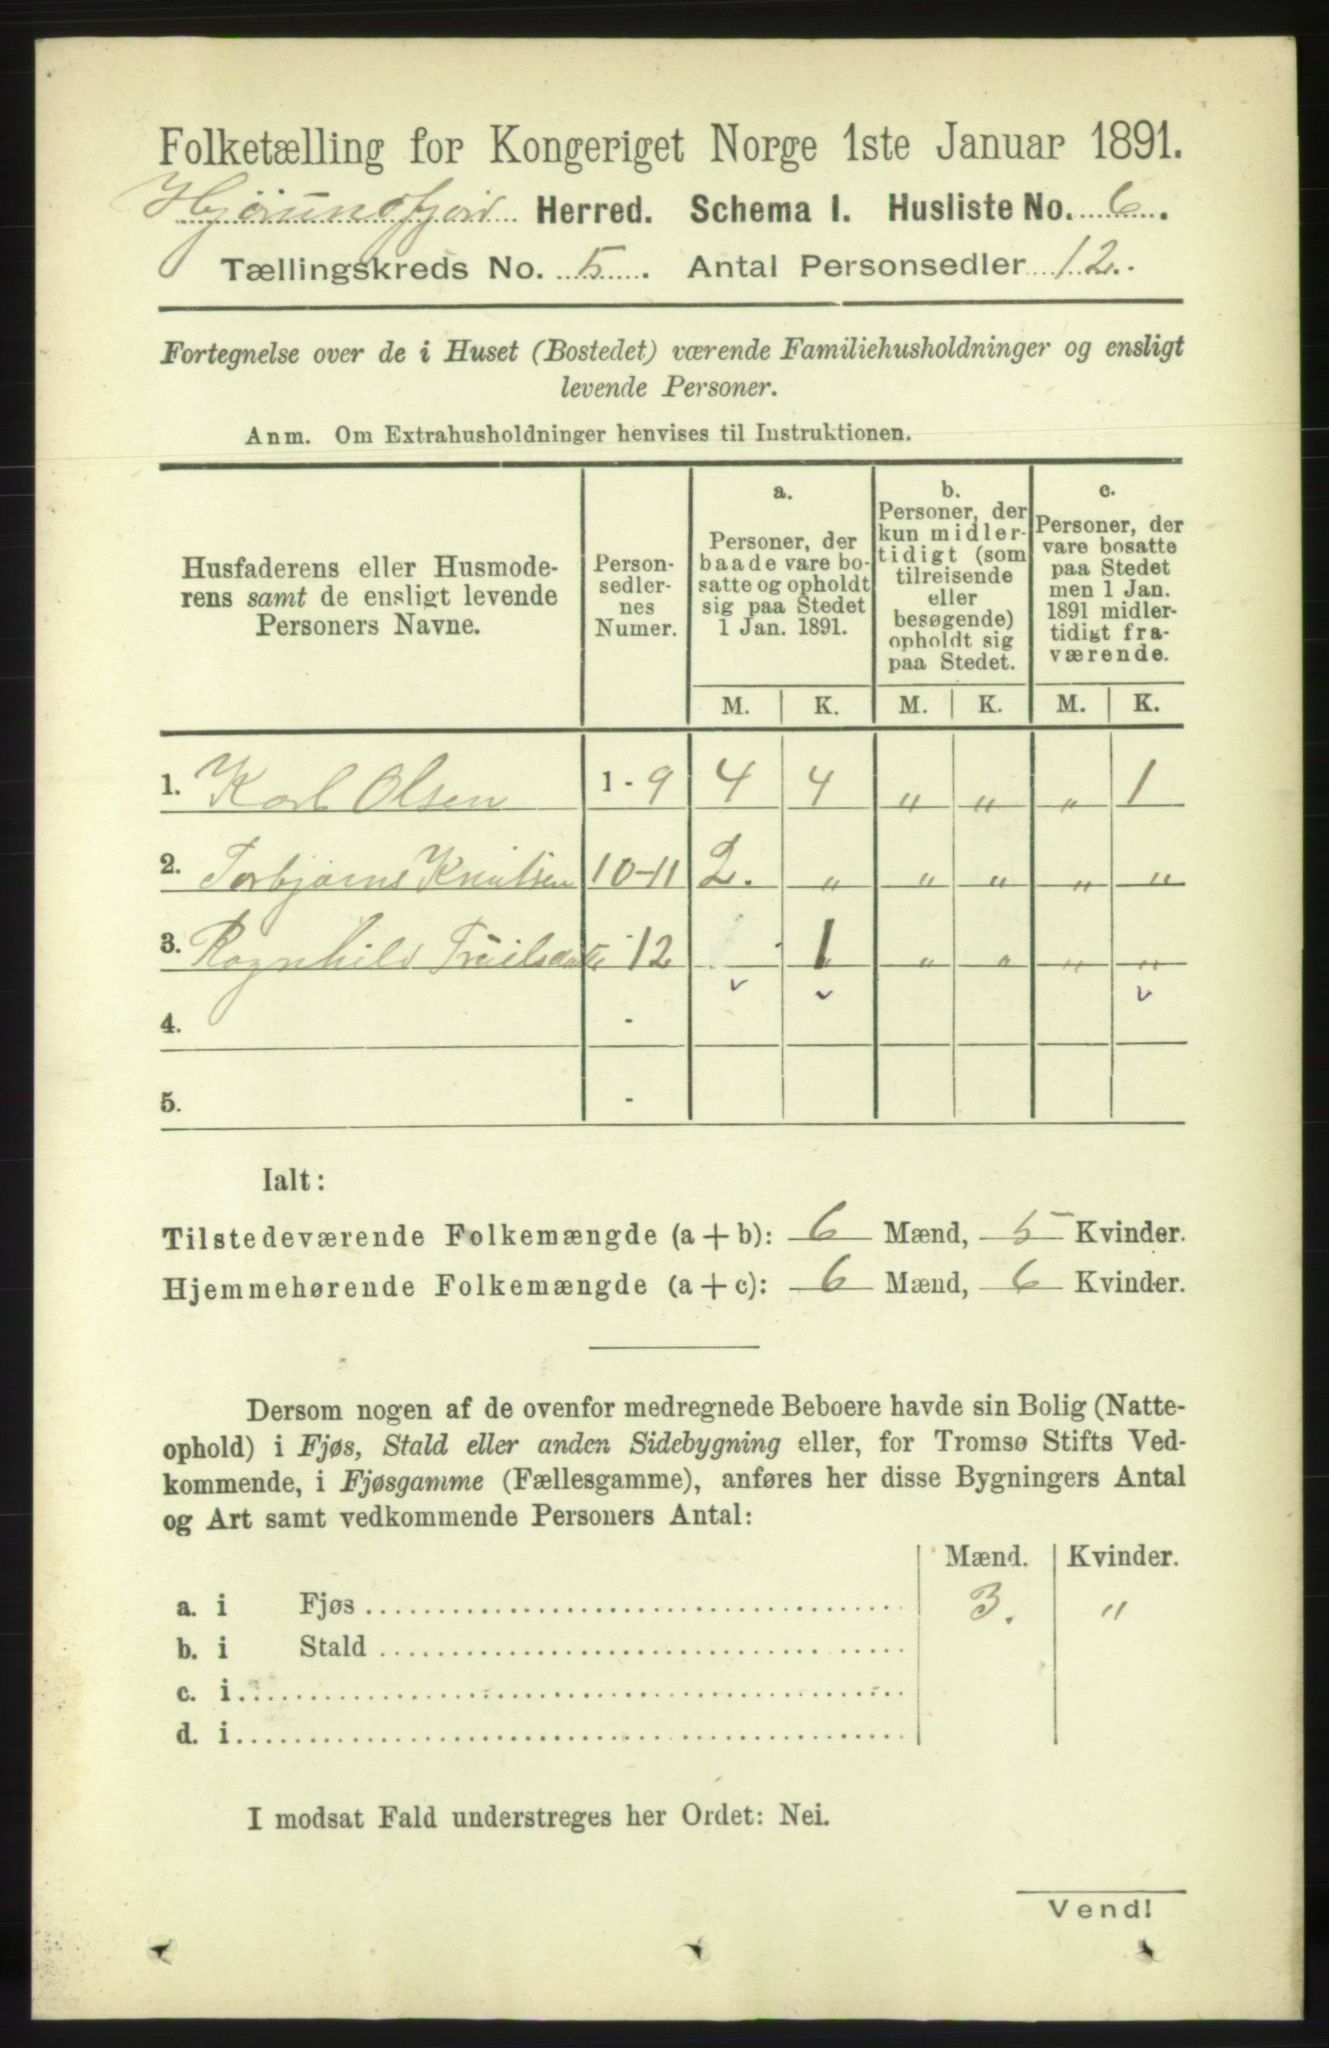 Folketælling for Kongeriget Norge 1ste Januar 1891.
Hjørundfjord Herred. Schema I. Husliste No. 6.
Tællingskreds No. 5. Antal Personsedler 12.
Fortegnelse over de i Huset (Bostedet) værende Familiehusholdninger og ensligt
levende Personer.
Anm. Om Extrahusholdninger henvises til Instruktionen.
Husfaderens eller Husmode-
rens samt de ensligt levende
Personers Navne.
Person-
sedler-
nes
Numer.
a.
Personer, der
baade vare bo-
satte og opholdt
sig paa Stedet
1 Jan. 1891.
b.
Personer, der
kun midler-
tidigt (som
tilreisende
eller
besøgende)
opholdt sig
paa Stedet.
c.
Personer, der
vare bosatte
paa Stedet
men 1 Jan.
1891 midler-
tidigt fra-
værende.
M. K. M. K. M. K.
1. Karl Olsen 1 - 9 4 4 " " " 1
2. Torbjørns Knutsen 10-11 2. " " " " "
3. Ragnhild - 12 1 " " " "
4. -
5. -
Ialt:
Tilstedeværende Folkemængde (a + b): 6 Mænd, 5 Kvinder.
Hjemmehørende Folkemængde (a + c): 6 Mænd, 6 Kvinder.
Dersom nogen af de ovenfor medregnede Beboere havde sin Bolig (Natte-
ophold) i Fjøs, Stald eller anden Sidebygning eller, for Tromsø Stifts Ved-
kommende, i Fjøsgamme (Fællesgamme), anføres her disse Bygningers Antal
og Art samt vedkommende Personers Antal:
Mænd. Kvinder.
a. i Fjøs 3. "
b. i Stald
c. i
d. i
I modsat Fald understreges her Ordet: Nei.
Vend!